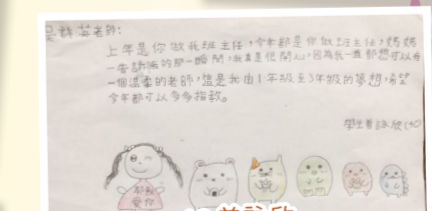 老師:
上年是你做我班主任,今年都是你做班主任,媽媽
一告訴我的那一瞬間,我真是很開心,因為我一直都想可以有
一個溫柔的老師,這是我由1年級至3年級的夢想,希望
今年都可以多多指教。
學生